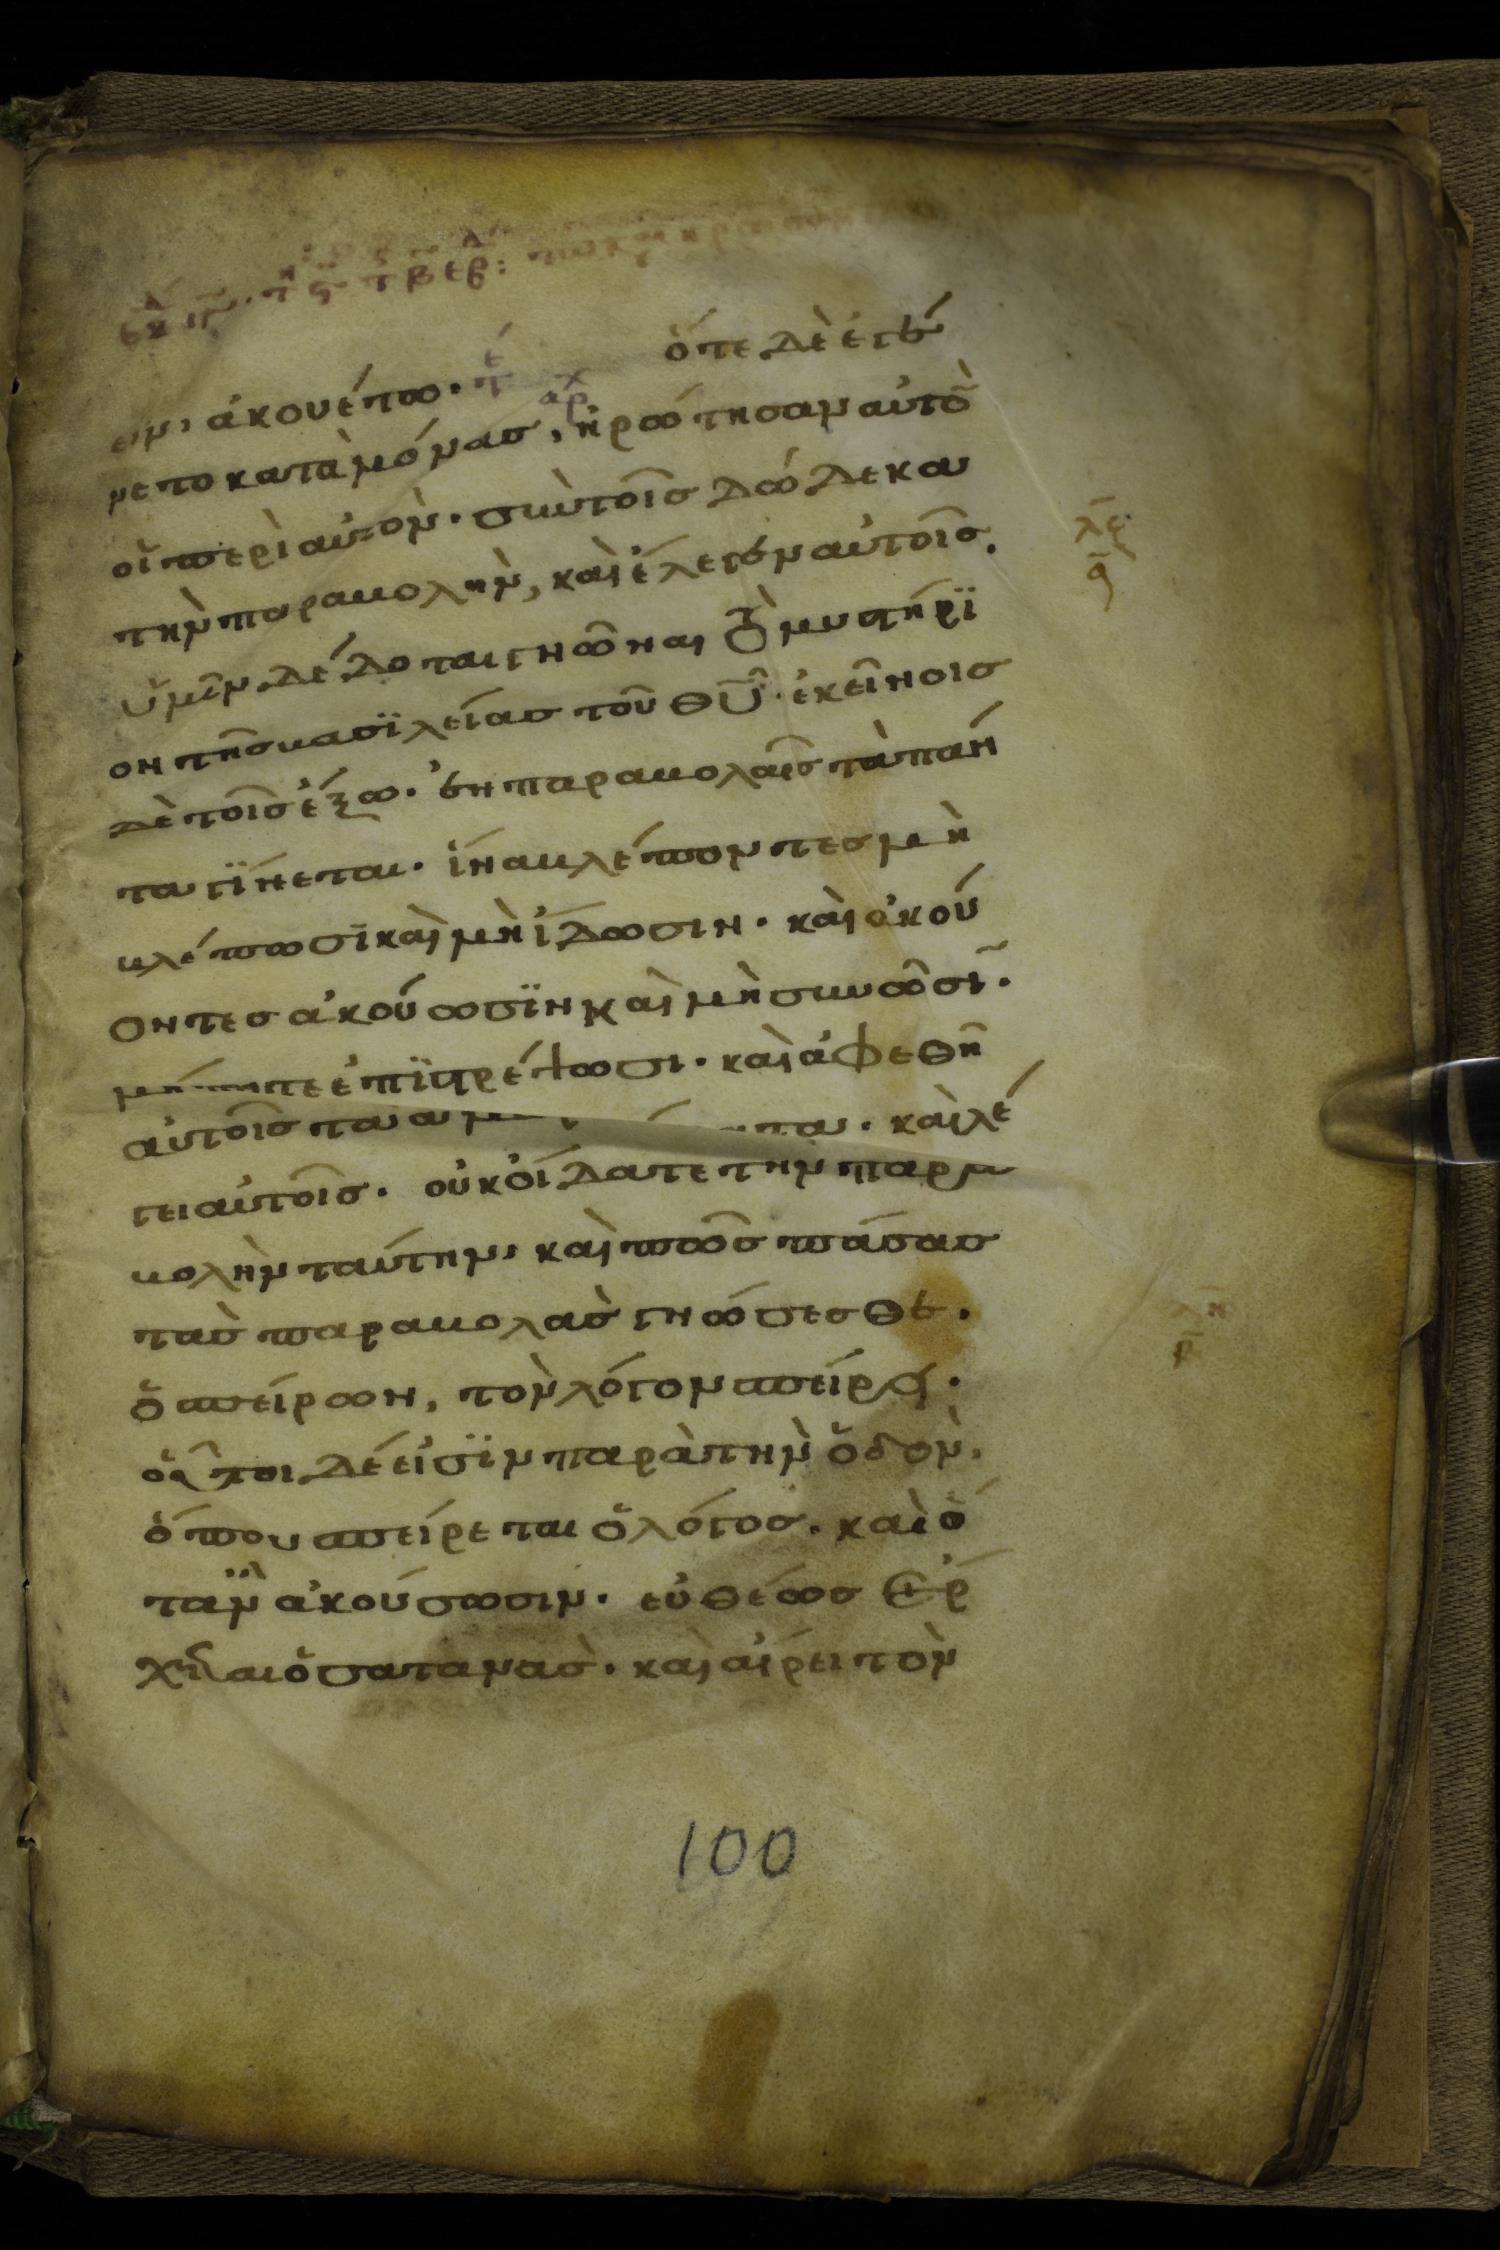 ειν, ἀκουέτω. τέ ὅτε δὲ ἐγέ
αρχ
νετο κατὰ μόνας, ἠρώτησαν αὐτὸ
οἱ περὶ αὐτὸν. σὺν τοῖς δώδεκα
τὴν παραβολὴν, καὶ ἔλεγεν αὐτοῖς.
ὑμῖν δέδοται γνῶναι τὸ μυστήρϊ
ον τῆς βασϊλείας τοῦ θῦ. ἐκεῖνοις
δὲ τοῖς ἔξω. ἐν παραβολαῖς τὰ πάν
τα γΐνεται. ἵνα βλέποντες μὴ
βλέπωσϊ καὶ μὴ ἴδωσιν. καὶ ἀκού
οντες ἀκούωσϊν καὶ μὴ συνῶσῖ.
μήποτε ἐπϊστρέψωσι. καὶ ἀφεθῆ
αὐτοῖς τὰ ἁμ τα. καὶ λέ
γει αὐτοῖς. οὐκ οἴδατε τὴν παρα
βολὴν ταύτην, καὶ πῶς πάσας
τὰς παραβολὰς γνώσεσθε.
ὁ σπείρων, τὸν λόγον σπείρει.
οὗτοι δέ εἰσϊν παρὰ τὴν ὁδὸν.
ὅπου σπείρεται ὁ λόγος. καὶ ὅ
τὰν ἀκούσωσιν. εὐθέως ἔρ
χεται ὁ σατανας. καὶ αἴρει τὸν
λζ
ϛ
λη
β
100